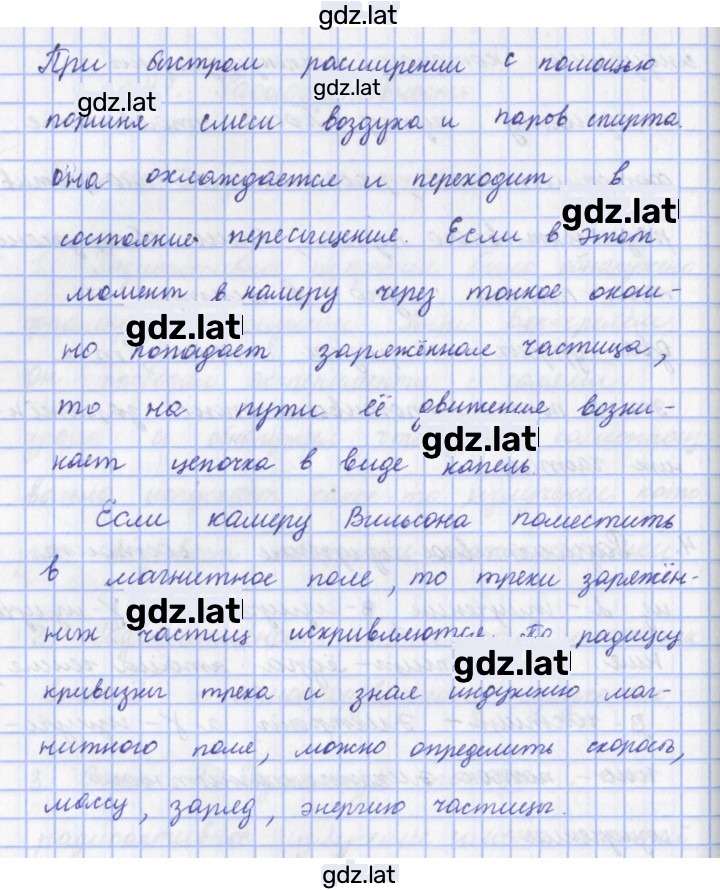 gdz.lat
При быстром расширении с помощью
gdz.lat
gdz.lat
поршня смеси воздуха и паров спирта
она охлаждается и переходит в
gdz.lat
состояние пересыщение. Если в этот
момент в камеру через тонкое окош-
gdz.lat
но попадает заряжённая частица,
то на пути её движения возни-
gdz.lat
кает цепочка в виде капель.
Если камеру Вильсона поместить
в магнитное поле, то треки заряжён-
gdz.lat
них частиц искривляются. По радиусу
gdz.lat
кривизны трека и зная индукцию маг-
нитного поля, можно определить скорость,
массу, заряд, энергию частицы.
gdz.lat